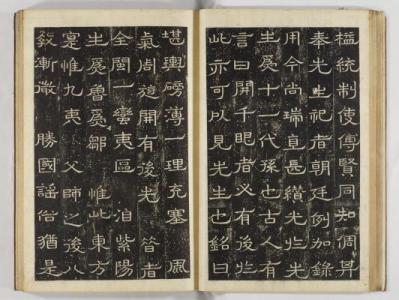 樞統制使傳賢同知昇
奉先生祀者朝廷例加錄
用今尚瑞直長纘光於先
生爲十一代孫也古人有
言曰開千眼者必有後於
此亦可以見先生也銘曰
堪輿磅薄一理充塞 風
氣周遊開有後先 昔者
全閩一蠻夷區 洎紫陽
生爲魯爲鄒 惟此東方
寔惟九夷 父師之後八
敎漸微 勝國謠俗猶是